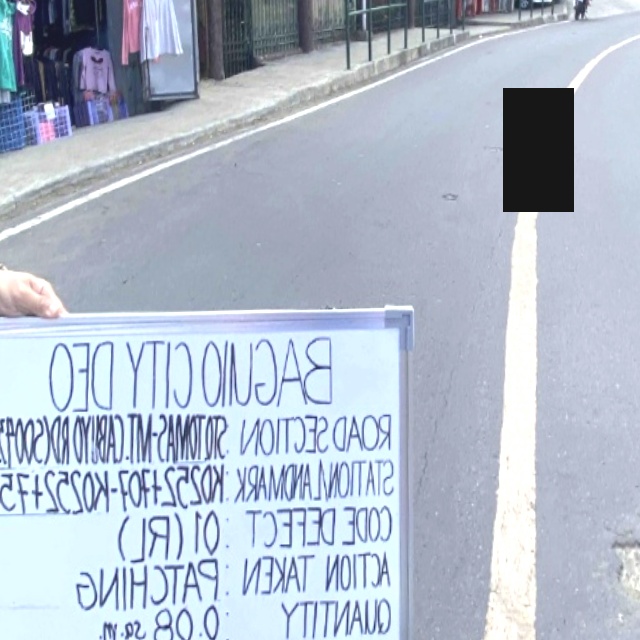 BAGUIO CITY DEO
ROAD SECTION : STO.TOMAS-MT.CABUYAO RD
STATION/LANDMARK : K0252+707-K0252+75
CODE DEFECT : 01 (RL)
ACTION TAKEN : PATCHING
QUANTITY : 0.08 sq.m.